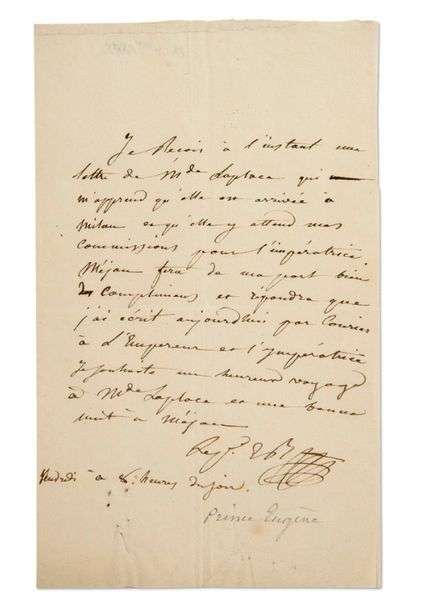 Je Reçois à l'instant une
lettre de Mde Laplace qui
m'apprend qu'elle est arrivée à
Milan et qu'elle y attend mes
commissions pour l'impératrice.
Méjan fera de ma part bien
des complimens et répondra que
j'ai écrit aujourd'hui par Courier
à L'Empereur et l'Impératrice
Je souhaite un heureux voyage
à Mde Laplace et une bonne
nuit à Méjan
Vendredi à 8. heures du soir.
Prince Eugène